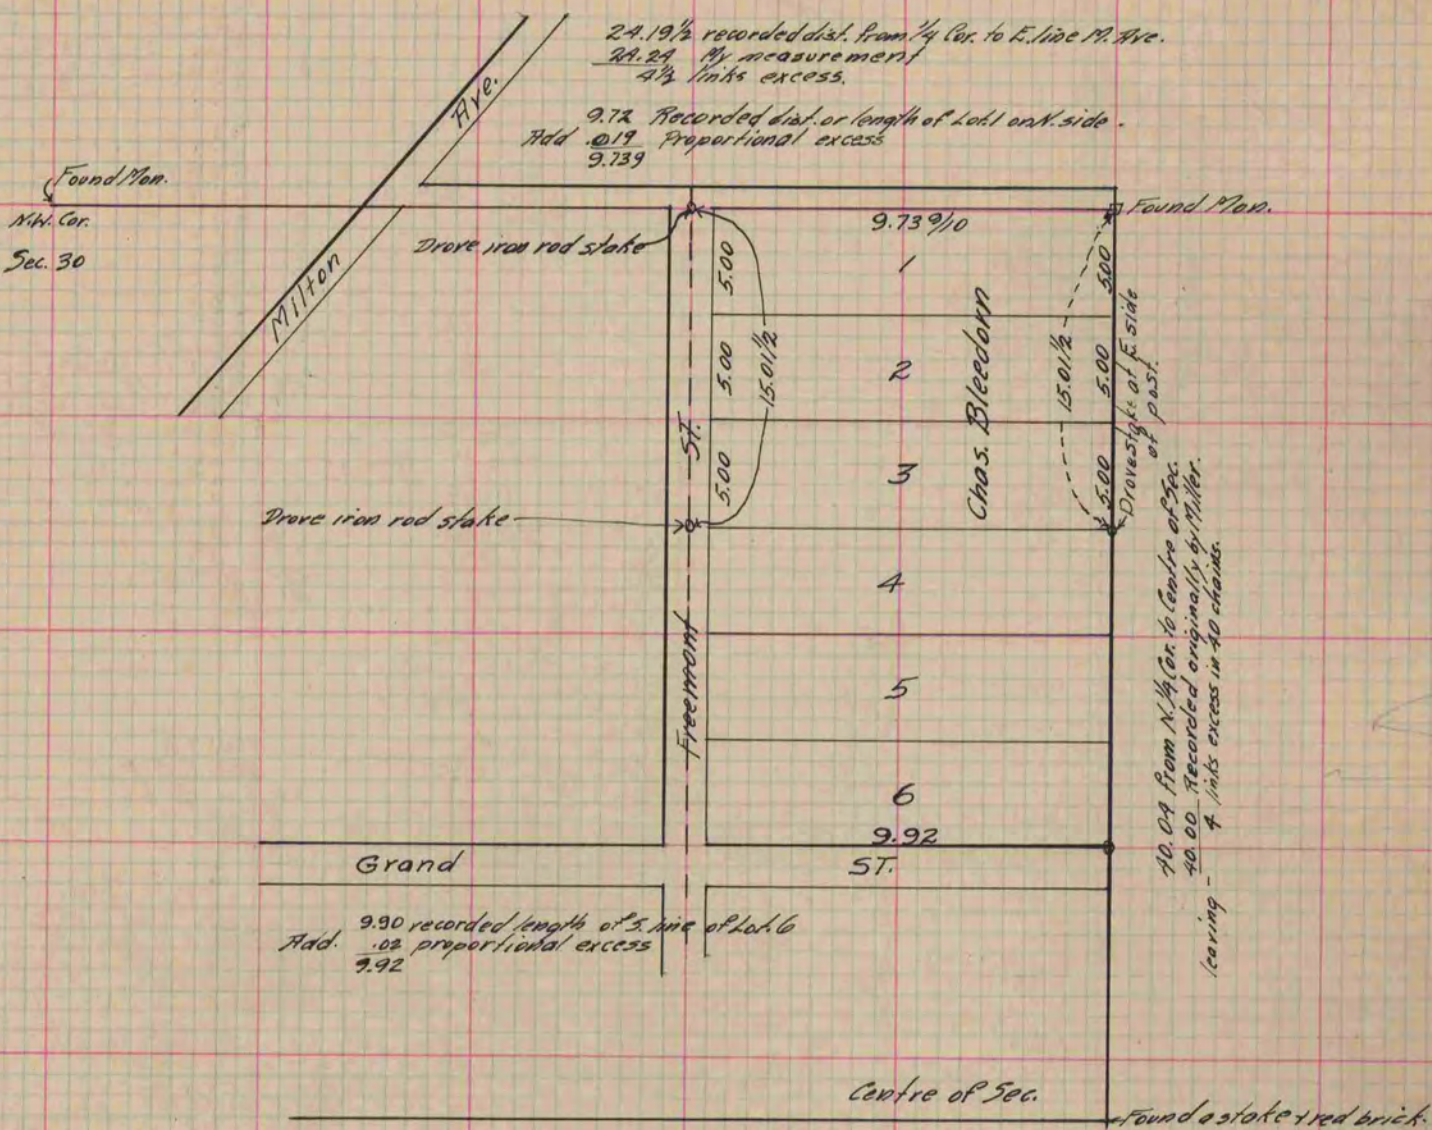 24.19½ recorded dist. from ¼ Cor. to E. line M. Ave.
24.24 My measurement
4½ links excess.
9.72 Recorded dist. or length of Lot 1 on N. side.
Add .019 Proportional excess
9.739
Ave.
Milton
Found Mon.
N.W. Cor.
Sec. 30
Found Mon.
Drove iron rod stake
9.73 9/10
1
5.00
5.00
2
5.00
5.00
15.01½
15.01½
Chas. Bleedorn
3
5.00
5.00
Drove stake at E. side
of post.
ST.
Drove iron rod stake
4
5
Freemont
6
9.92
40.04 From N. ¼ Cor. to Centre of Sec.
40.00 Recorded originally by Miller.
leaving - 4 links excess in 40 chains.
Grand
ST.
9.90 recorded length of S. line of Lot 6
Add. .02 proportional excess
9.92
Centre of Sec.
Found a stake & red brick.